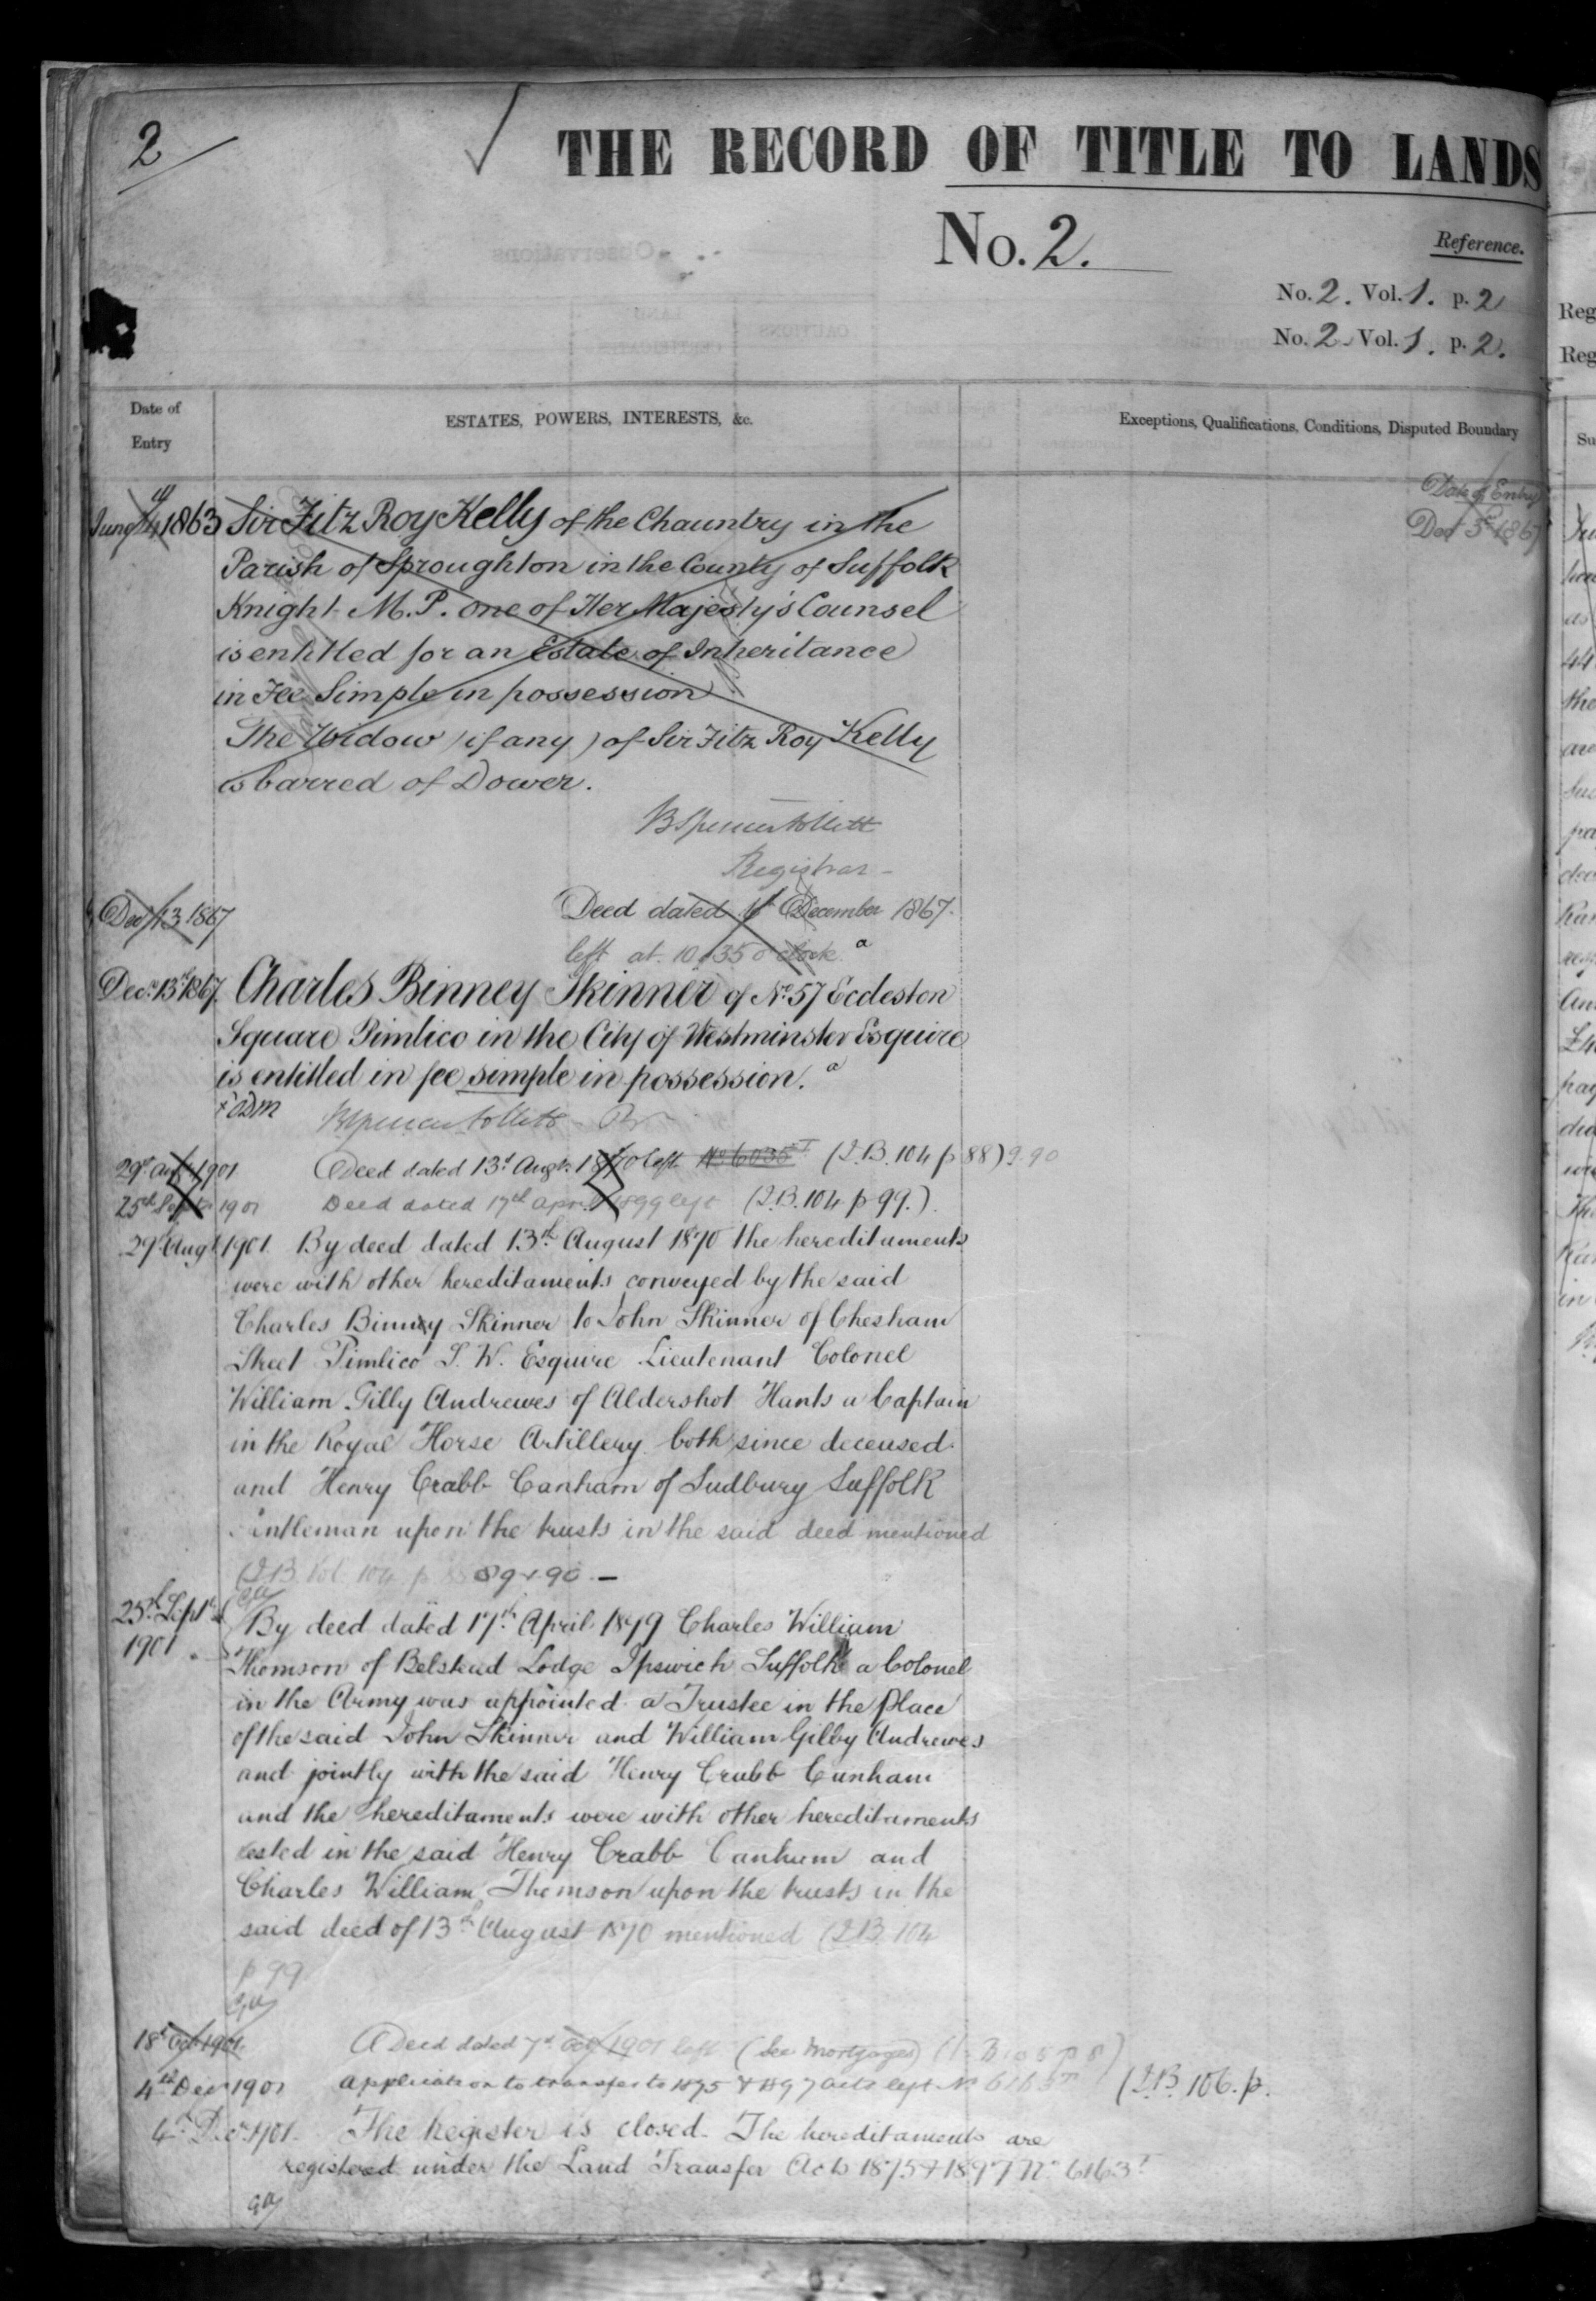 2
THE RECORD OF TITLE TO LANDS
No. 2.
Reference.
No. 2. Vol. 1. p. 2
No. 2. Vol. 1. p. 2.
Date of Entry
ESTATES, POWERS, INTERESTS, &c.
Exceptions, Qualifications, Conditions, Disputed Boundary
Date of Entry
Dec 3rd 1867
June 1863 Sir Fitz Roy Kelly of the Chauntry in the
Parish of Sproughton in the County of Suffolk
Knight M.P. one of Her Majesty's Counsel
is entitled for an Estate of Inheritance
in Fee Simple in possession
The Widow (if any) of Sir Fitz Roy Kelly
is barred of Dower.
Registrar
Dec 13 1867 Deed dated December 1867.
left at 10.35 o'clock a
Decr. 13th 1867. Charles Binney Skinner of No. 57 Eccleston
Square Pimlico in the City of Westminster Esquire
is entitled in fee simple in possession. a
29th Augt 1901 Deed dated 13th Augt. 1870 left No 6035 T (I.B. 104 p 88) 9.90
25th Sept 1901 Deed dated 17th April 1899 left (I.B. 104 p 99.)
29th Augt 1901. By deed dated 13th August 1870 the hereditaments
were with other hereditaments conveyed by the said
Charles Binney Skinner to John Skinner of Chesham
Street Pimlico S.W. Esquire Lieutenant Colonel
William Gilly Andrewes of Aldershot Hants a Captain
in the Royal Horse Artillery both since deceased
and Henry Crabb Canham of Sudbury Suffolk
Gentleman upon the trusts in the said deed mentioned
(I.B. Vol 104 p 88 89 & 90 —
25th Septr 1901. By deed dated 17th April 1899 Charles William
Thomson of Belstead Lodge Ipswich Suffolk a Colonel
in the Army was appointed a Trustee in the place
of the said John Skinner and William Gilby Andrewes
and jointly with the said Henry Crabb Canham
and the hereditaments were with other hereditaments
vested in the said Henry Crabb Canham and
Charles William Thomson upon the trusts in the
said deed of 13th August 1870 mentioned (I.B. 104
p 99
18th Oct 1901. A Deed dated 7th Oct 1901 left (See Mortgages) (I.B. 105 p 8)
4th Decr 1901 Application to transfer to 1875 & 1897 Acts left No 6163 T (I.B. 106. p.
4th Decr 1901. The Register is closed. The hereditaments are
registered under the Land Transfer Acts 1875 & 1897 No. 6163 T